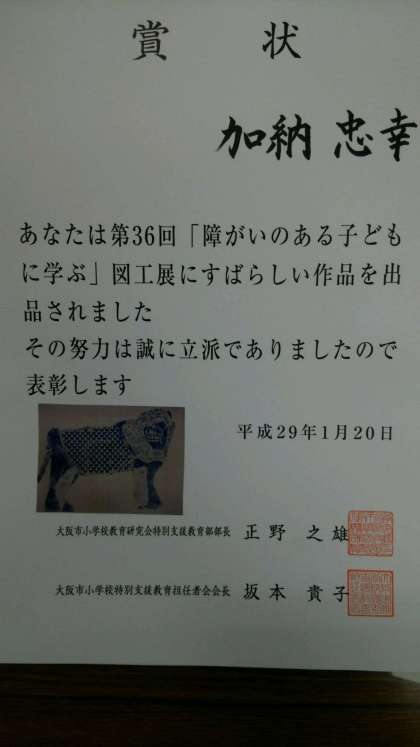 賞状
加納 忠幸
あなたは第36回「障がいのある子ども
に学ぶ」図工展にすばらしい作品を出
品されました
その努力は誠に立派でありましたので
表彰します
平成29年1月20日
大阪市小学校教育研究会特別支援教育部部長 正野 之雄
大阪市小学校特別支援教育担任者会会長 坂本 貴子